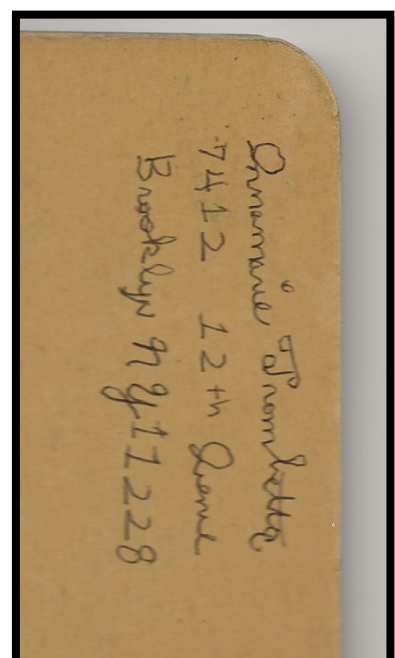 Annamarie Trombetta
7412 12th Avenue
Brooklyn NY 11228